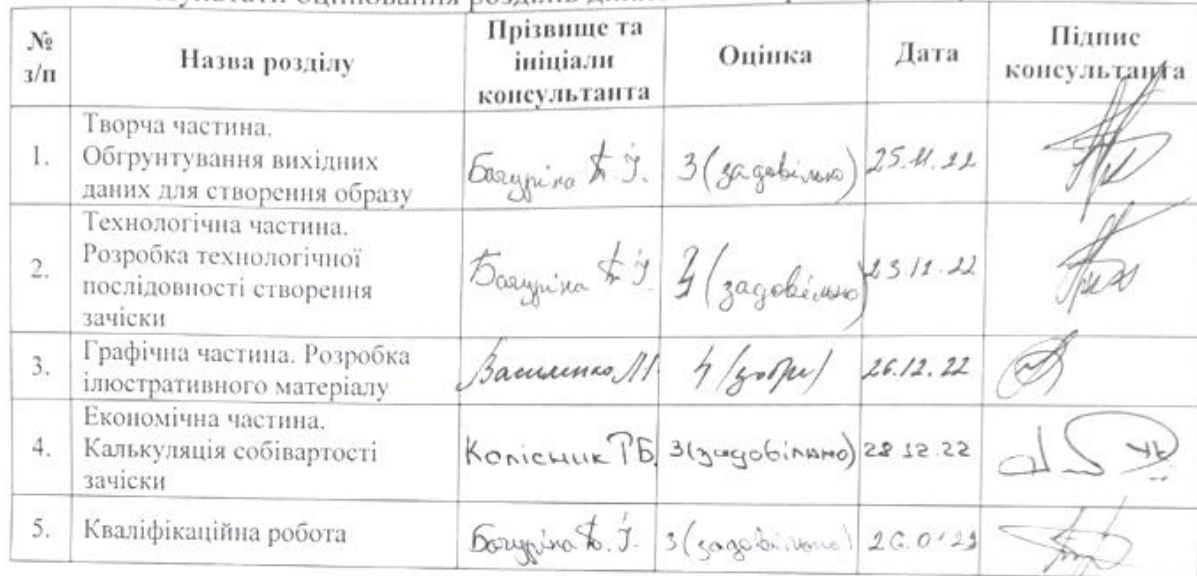 оцінювання розділів
№ з/п
Назва розділу
Прізвище та ініціали консультанта
Оцінка
Дата
Підпис консультанта
1.
Творча частина.
Обґрунтування вихідних
даних для створення образу
3 (задовільно)
25.11.22
2.
Технологічна частина.
Розробка технологічної
послідовності створення
зачіски
(задовільно)
23.12.22
3.
Графічна частина. Розробка
ілюстративного матеріалу
Василенко
4 (добре)
26.12.22
4.
Економічна частина.
Калькуляція собівартості
зачіски
Колісник Р.Б.
3 (задовільно)
28.12.22
5.
Кваліфікаційна робота
3 (задовільно)